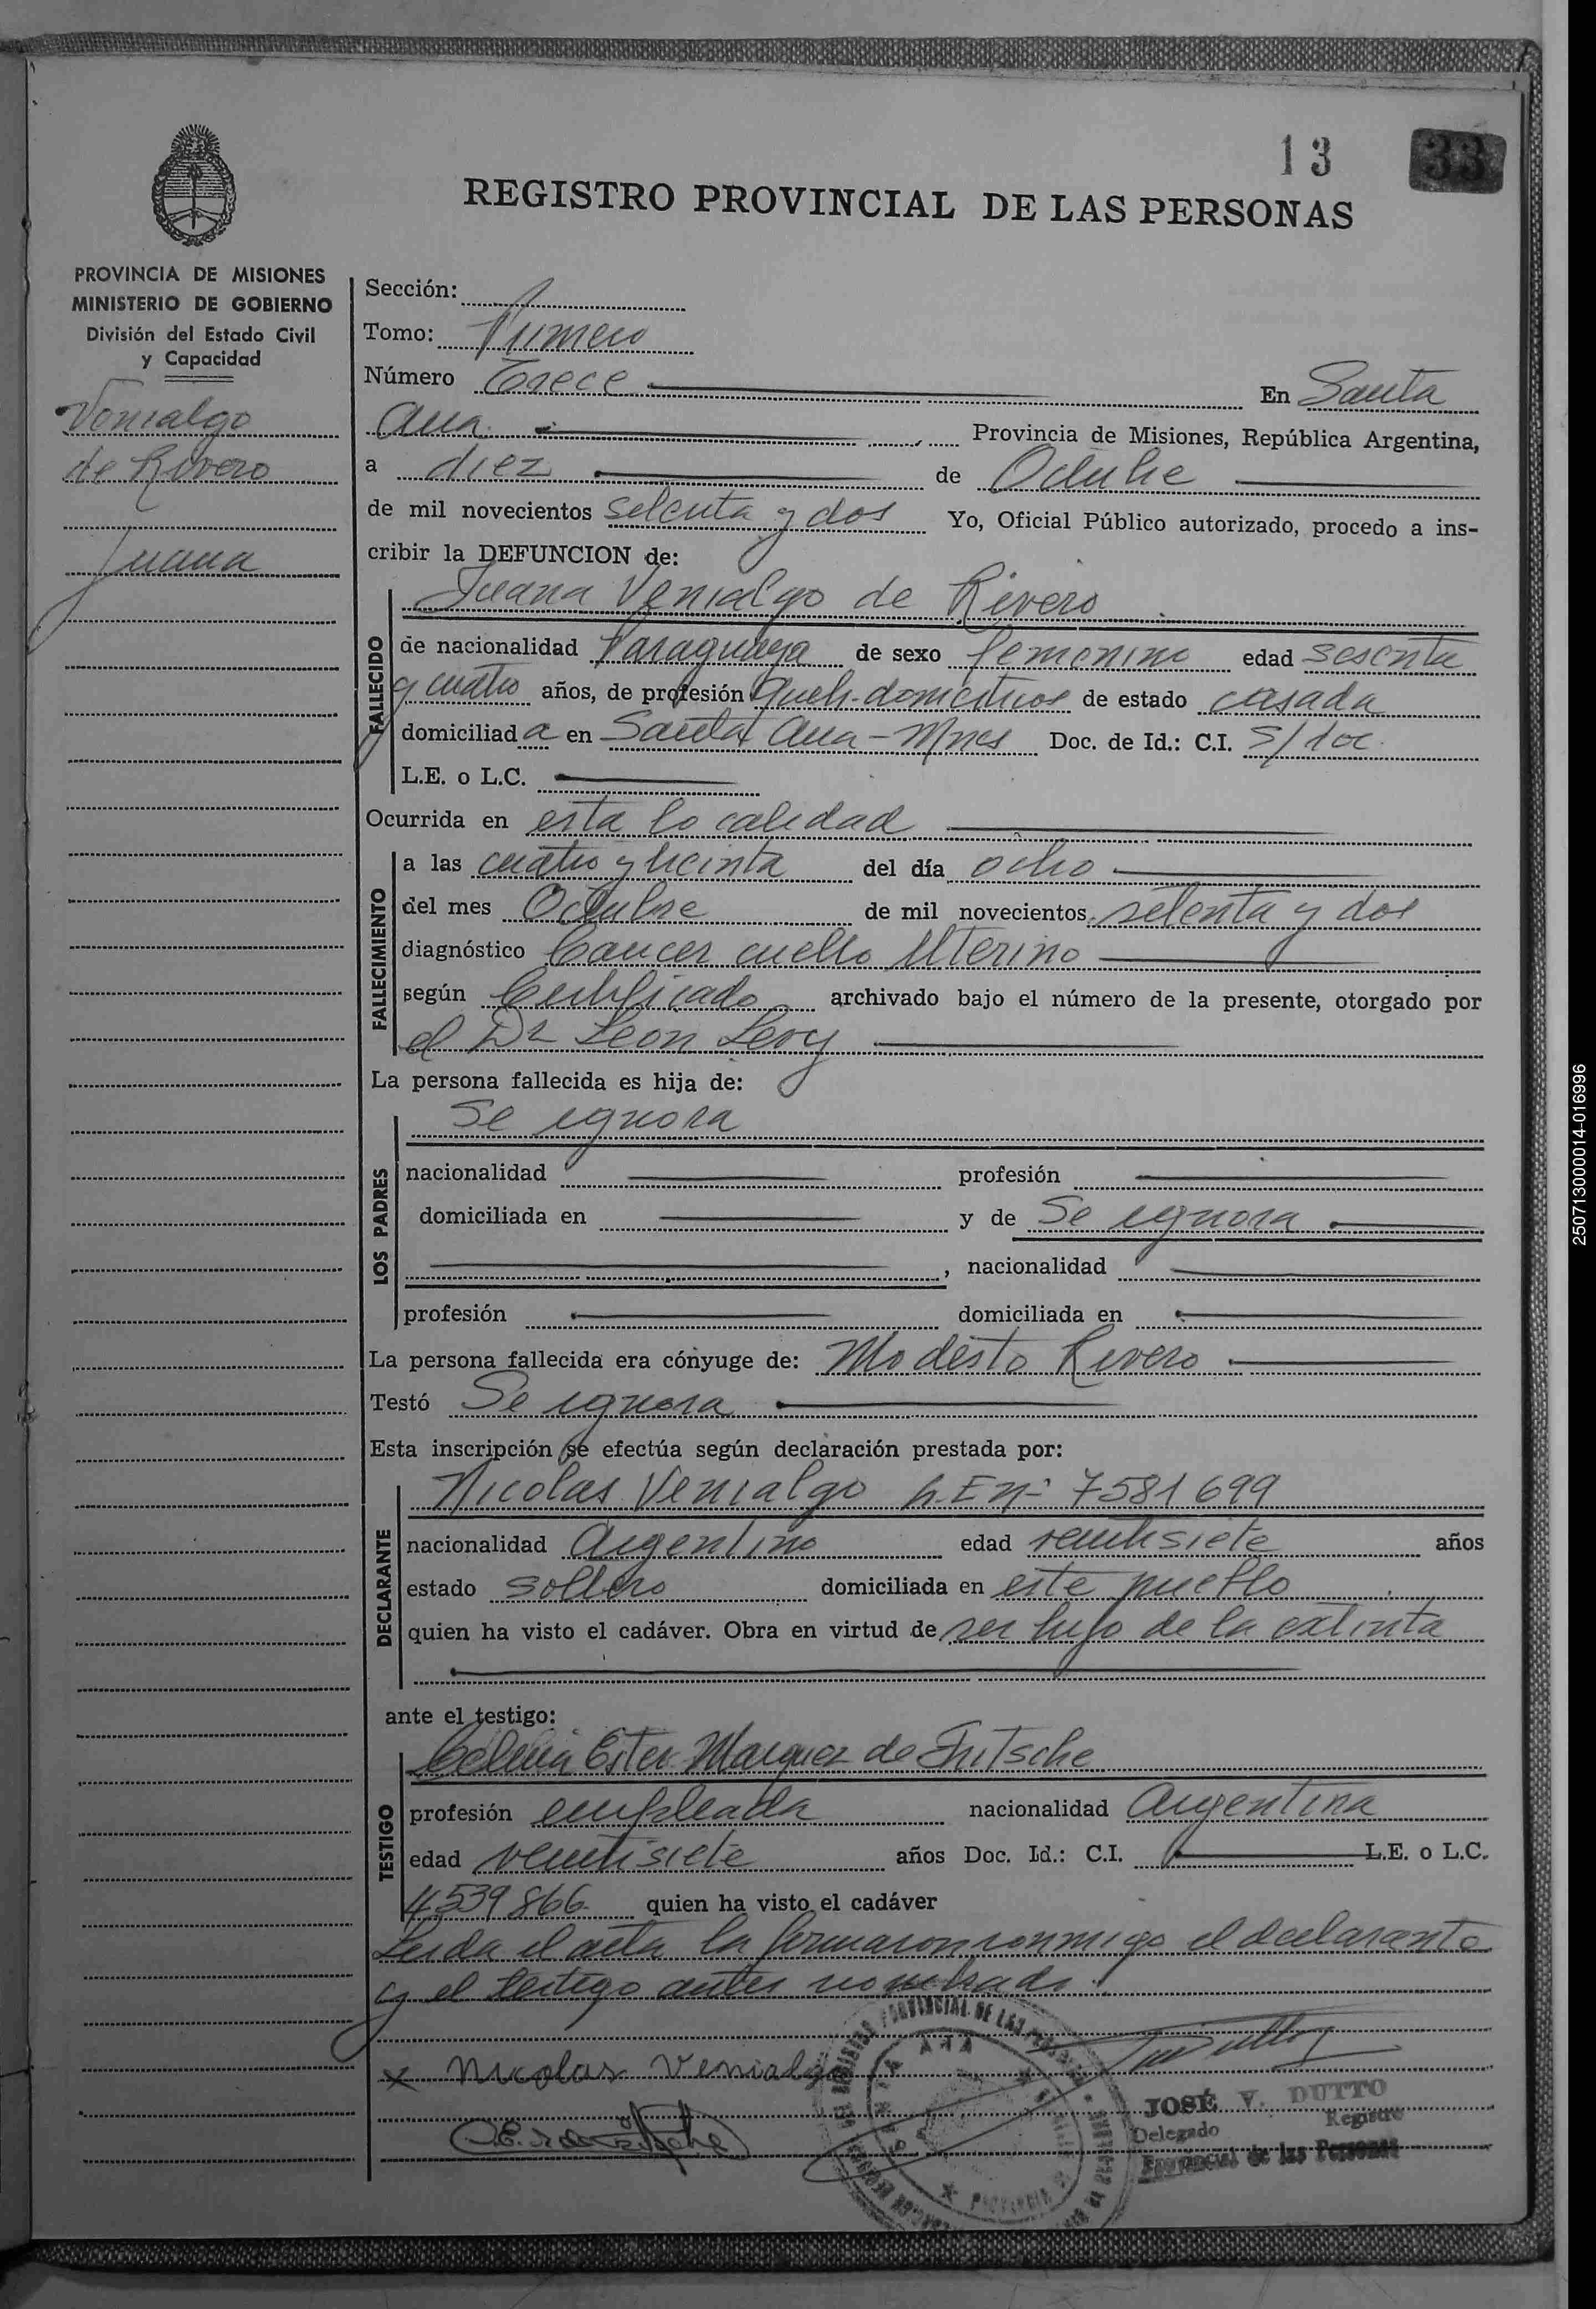 13 33
REGISTRO PROVINCIAL DE LAS PERSONAS
PROVINCIA DE MISIONES
MINISTERIO DE GOBIERNO
División del Estado Civil
y Capacidad
Venialgo
de Rivero
Juana
Sección:
Tomo: Primero
Número Trece En Santa
Ana Provincia de Misiones, República Argentina,
a diez de Octubre
de mil novecientos setenta y dos Yo, Oficial Público autorizado, procedo a ins-
cribir la DEFUNCION de:
FALLECIDO
Juana Venialgo de Rivero
de nacionalidad Paraguaya de sexo femenino edad sesenta
y cuatro años, de profesión Queh. domesticos de estado casada
domiciliada en Santa Ana - Mnes Doc. de Id.: C.I. S/doc.
L.E. o L.C.
Ocurrida en esta localidad
FALLECIMIENTO
a las cuatro y treinta del día ocho
del mes Octubre de mil novecientos setenta y dos
diagnóstico Cancer cuello Uterino
según Certificado archivado bajo el número de la presente, otorgado por
el Dr Leon Levy
La persona fallecida es hija de:
LOS PADRES
Se ignora
nacionalidad profesión
domiciliada en y de Se ignora
, nacionalidad
profesión domiciliada en
La persona fallecida era cónyuge de: Modesto Rivero
Testó Se ignora
Esta inscripción se efectúa según declaración prestada por:
DECLARANTE
Nicolas Venialgo L.E nº 7581699
nacionalidad Argentino edad veintisiete años
estado soltero domiciliada en este pueblo
quien ha visto el cadáver. Obra en virtud de ser hijo de la extinta
ante el testigo:
TESTIGO
Ester Marquez de Fritsche
profesión empleada nacionalidad Argentina
edad veintisiete años Doc. Id.: C.I. L.E. o L.C.
4539866 quien ha visto el cadáver
Leida el acta la firmaron conmigo el declarante
y el testigo antes nombrado.
x Nicolas Venialgo
JOSÉ V. DUTTO
Delegado Registro
Provincial de las Personas
250713000014-016996